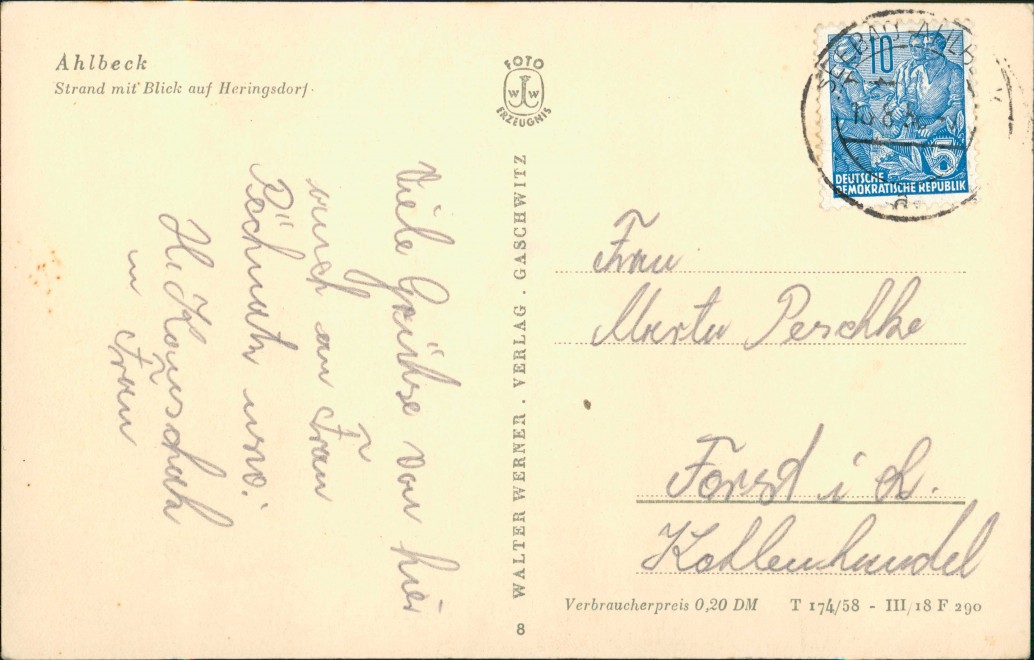 Ahlbeck
Strand mit Blick auf Heringsdorf
FOTO
W W
ERZEUGNIS
WALTER WERNER . VERLAG . GASCHWITZ
8
Viele Grüße von hier
auch an Frau
usw.
H.
u Frau
SEEBAD AHLBECK
a
10
5
DEUTSCHE
DEMOKRATISCHE REPUBLIK
Frau
Marta Peschke
Forst i L.
Kohlenhandel
Verbraucherpreis 0,20 DM T 174/58 - III/18 F 290